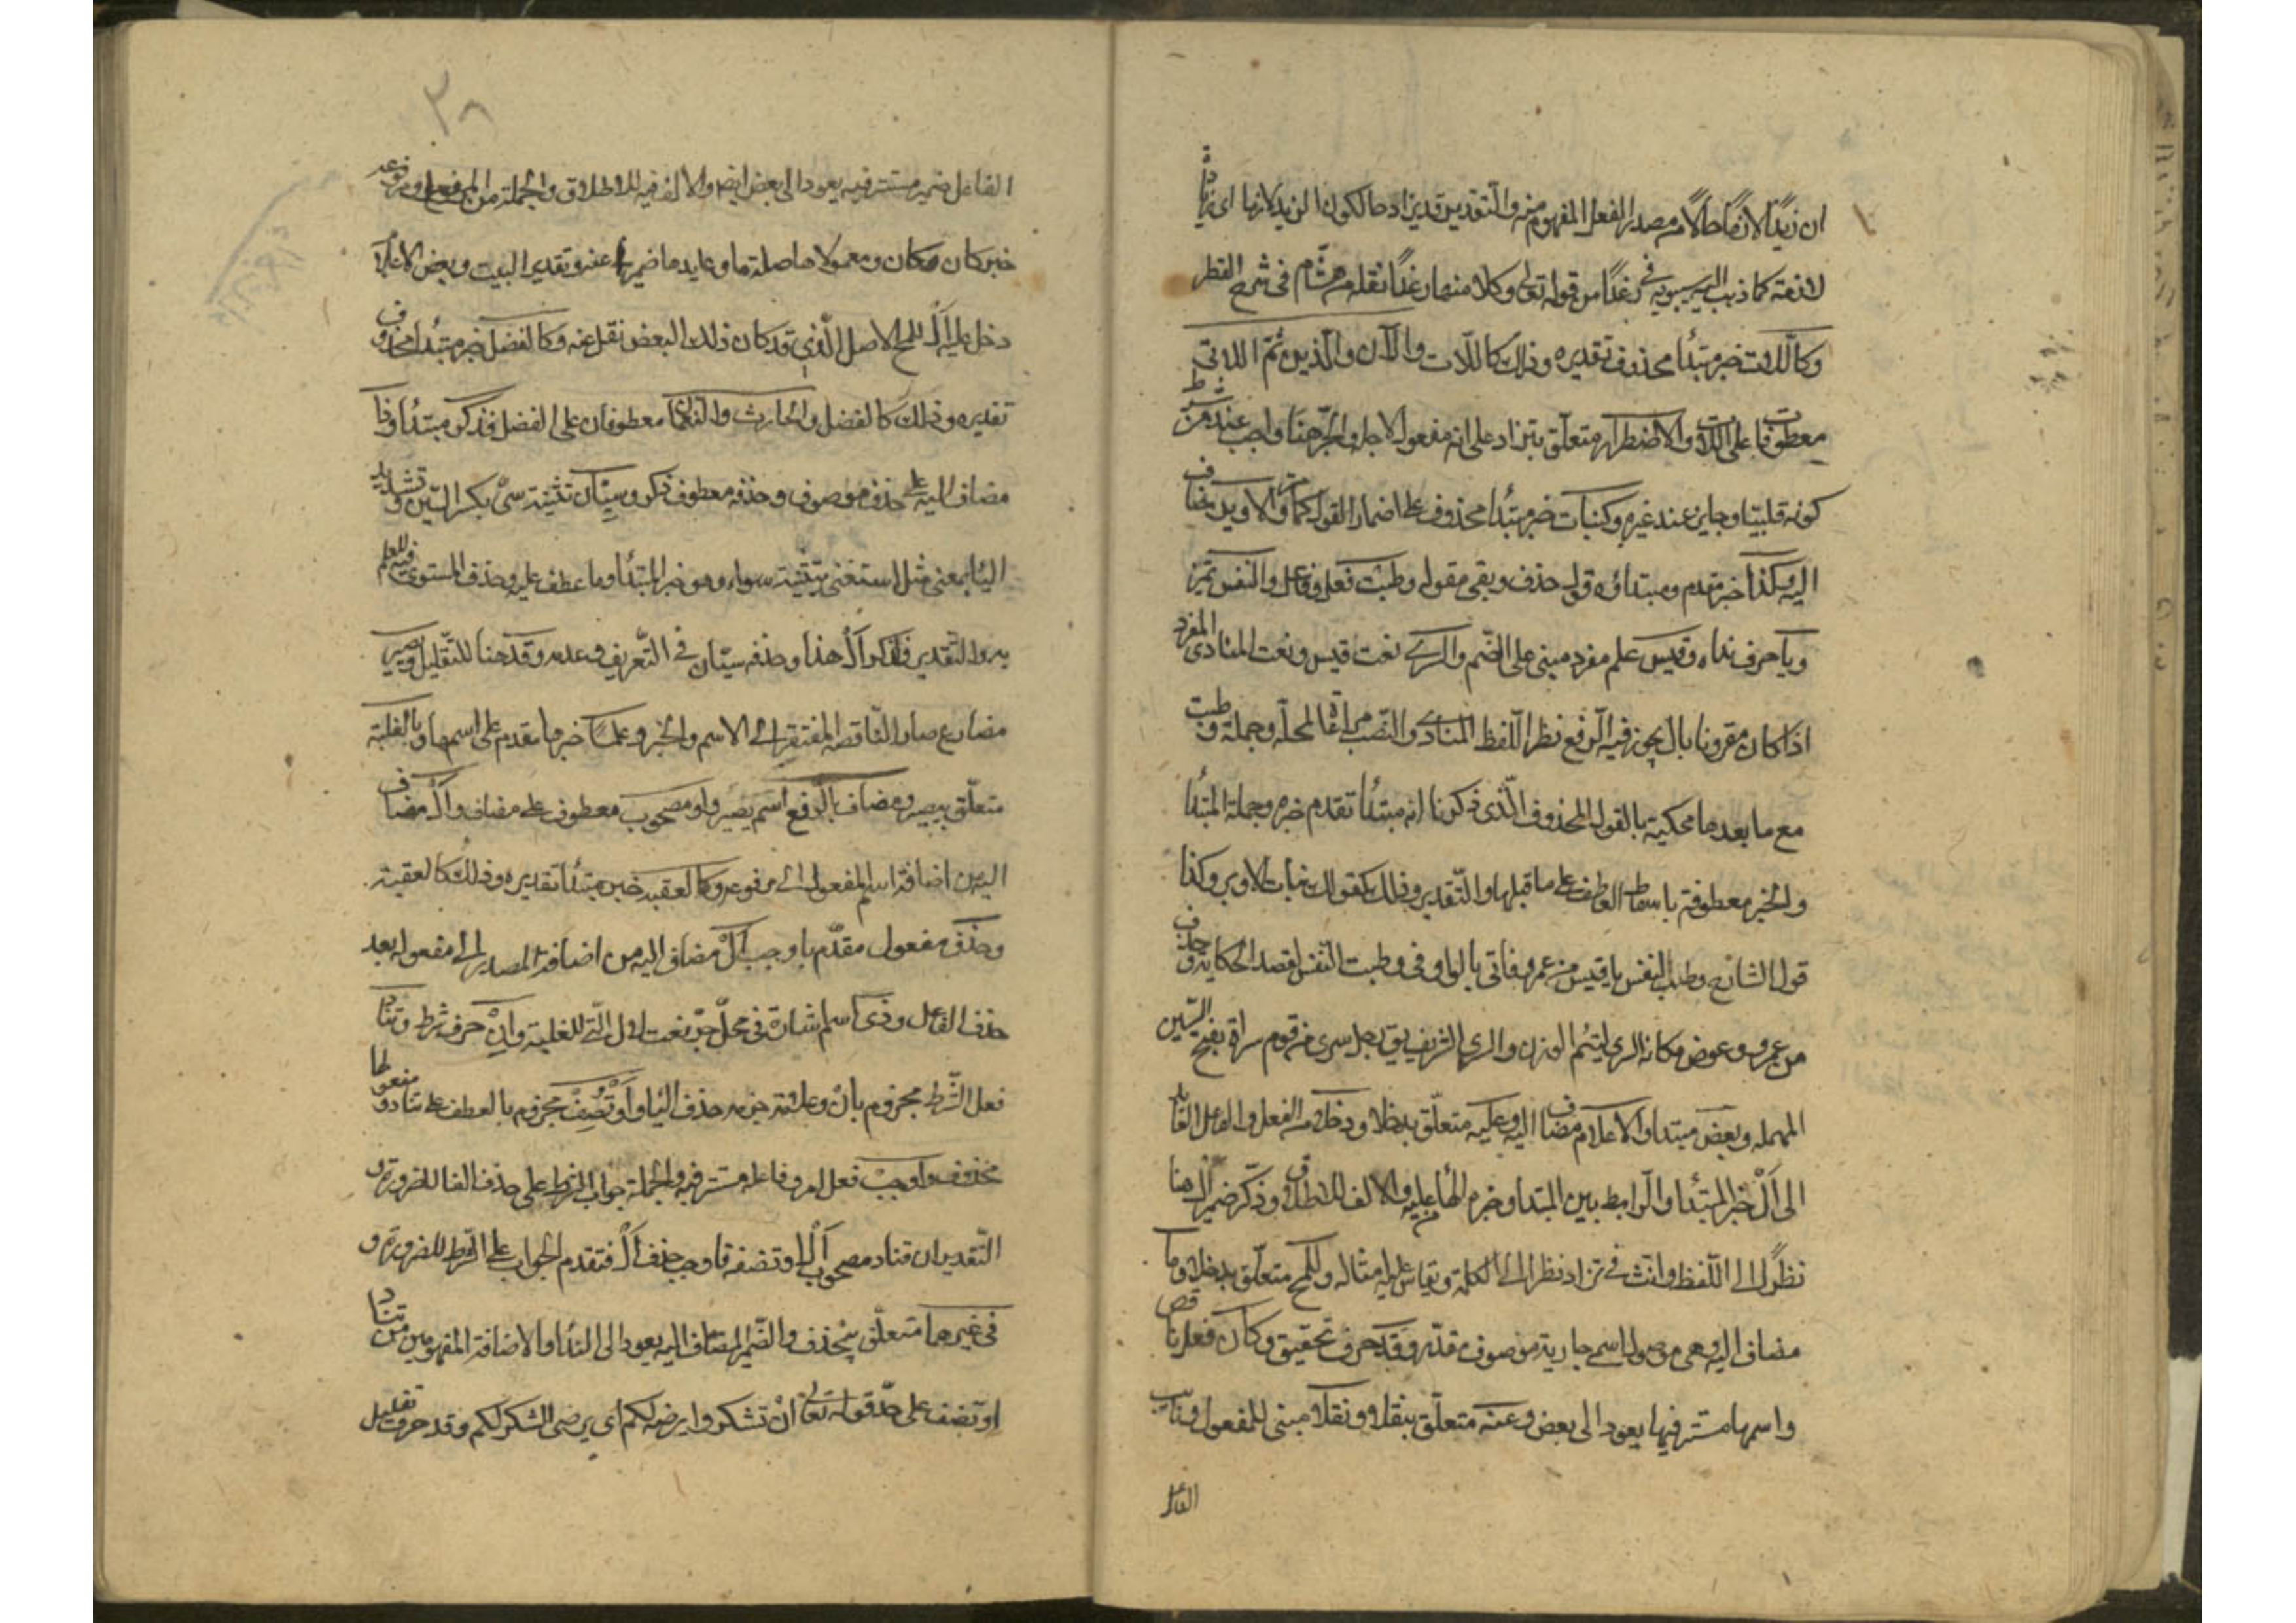 ان زيدا لازما حالا من مصدر الفعل المفهوم منه والتقدير قد يزاد حالكون الزيد لازما اى زيادة
لازمة كما ذهب اليه سيبويه فى رغدا من قوله تعالى وكلا منها رغدا نقله هشام فى شرح القطر
وكاللات خبر مبتدأ محذوف تقديره وذلك كاللات والآن والذين ثم اللاتى
معطوفات على اللات والاضطرار متعلق بتزاد على انه مفعول لاجله والجر هنا واجب عند من شرط
كونه قلبيا وجايز عند غيره وكبنات خبر مبتدأ محذوف على اضمار القول كما مر والاوبر مضاف
اليه وكذا خبر مقدم ومبتداؤه قول حذف وبقى مقوله وطبت فعل وفاعل والنفس تميز
ويا حرف نداء وقيس علم مفرد مبنى على الضم والسرى نعت قيس ونعت المنادى المفرد
اذا كان مقرونا بال يجوز فيه الرفع نظرا للفظ المنادى والنصب مراعاة لمحله وجملة وطبت
مع ما بعدها محكية بالقول المحذوف الذى ذكرنا انه مبتدأ تقدم خبره وجملة المبتدأ
والخبر معطوفة باسقاط العاطف على ما قبلها والتقدير وذلك كقولك بنات الاوبر وكذا
قول الشاعر وطبت النفس يا قيس عن عمرو فاتى بالواو فى وطبت النفس لقصد الحكاية وحذف
من عمرو وعوض مكانه السرى ليتم الوزن والسرى الشريف يق رجل سرى من قوم سراة بفتح السين
المهمله وبعض مبتدا والاعلام مضاف اليه وعليه متعلق بدخلا ودخلا من الفعل والفاعل العايد
الى أل خبر المبتدأ والرابط بين المبتدا وخبره الهأ من عليه والالف للاطلاق وذكر ضمير أل هنا
نظرا الى اللفظ وانث فى تزاد نظرا الى الكلمة ويقاس عليه امثاله وللمح متعلق بدخلا وما
مضاف اليه وهى موصول اسمى جارية موصوف مقدر وقد حرف تحقيق وكان فعل ناقص
واسمها مستتر فيها يعود الى بعض وعنه متعلق بنقلا ونقلا مبنى للمفعول ونايب
الفاعل
٣٨
الفاعل ضمير مستتر فيه يعود الى بعض ايضا والالف فيه للاطلاق والجملة من الفعل ومرفوعه
خبر كان وكان ومعمولاها صلة ما وعايدها ضمير عنه وتقدير البيت وبعض الاعلام
دخل عليه أل للمح الاصل الذى قد كان ذلك البعض نقل عنه وكالفضل خبر مبتدأ محذوف
تقديره وذلك كالفضل والحارث والنعمان معطوفان على الفضل فذكر مبتدأ وذا
مضاف اليه على حذف موصوف وحذفه معطوف ذكر وسيان تثنية سى بكسر السين وتشديد
اليا بمعنى مثل استغنى بتثنيته عن سواء وهو خبر المبتدأ وما عطف عليه وحذف المستوى فيه للعلم
به والتقدير فذكر أل هذا وحذفه سيان فى التعريف وعدمه وقد هنا للتقليل ويصير
مضارع صار الناقصة المفتقرة الى الاسم والخبر وعلما خبرها مقدم على اسمها وبالغلبة
متعلق بيصير ومضاف بالرفع اسم يصير واو مصحوب معطوف على مضاف وأل مضاف
اليه من اضافة اسم المفعول الى مرفوعه وكالعقبه خبر مبتدأ تقديره وذلك كالعقبة
وحذف مفعول مقدم باوجب أل مضاف اليه من اضافة المصدر الى مفعوله بعد
حذف الفاعل وذى اسم اشارة فى محل جر نعت لال التى للغلبة وان حرف شرط وتناد
فعل الشرط مجزوم بان وعلامة جزمه حذف اليا واو تضف مجزوم بالعطف على تناد ومفعولها
محذوف واوجب فعل امر وفاعله مستتر فيه والجملة جواب الشرط على حذف الفا للضرورة و
التقدير ان تناد مصحوب أل او تضفه فاوجب حذف أل فتقدم الجواب على الشرط للضرورة و
فى غيرهما متعلق بتحذف والضمير المضاف اليه يعود الى الندا والاضافة المفهومين من تناد
او تضف على حد قوله تعالى ان تشكروا يرضه لكم اى يرضى الشكر لكم وقد حرف تقليل